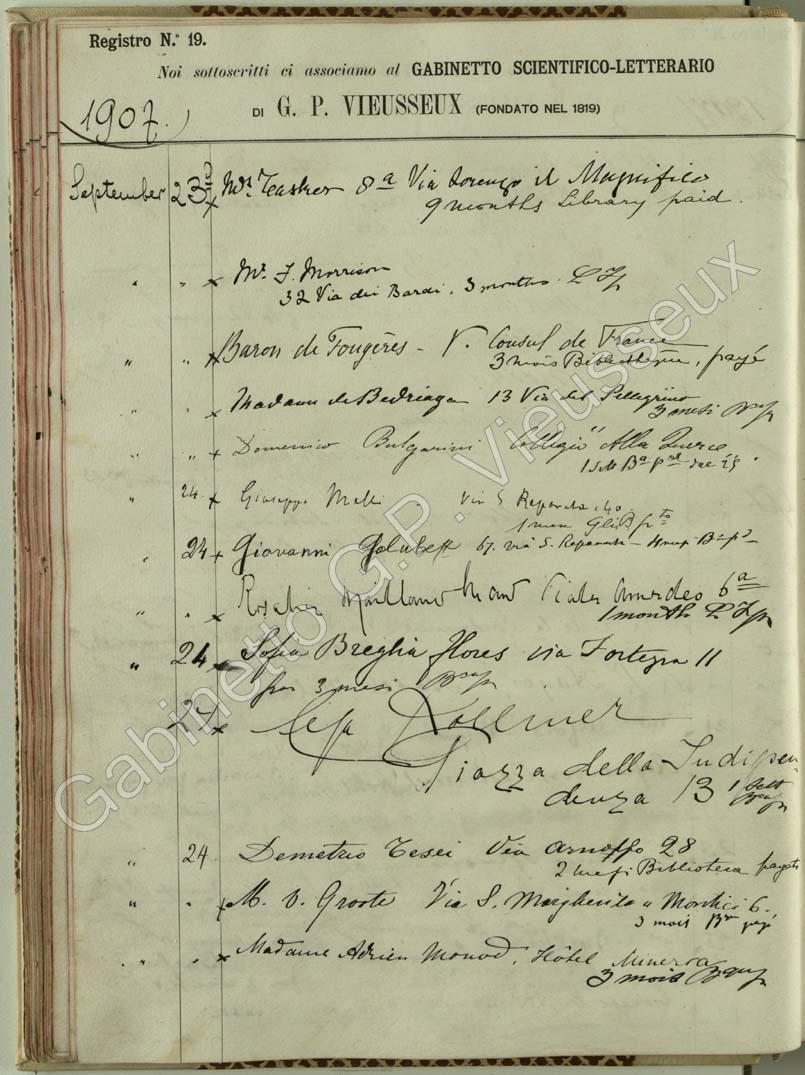 Registro N.° 19.
Noi sottoscritti ci associamo al GABINETTO SCIENTIFICO-LETTERARIO
DI G. P. VIEUSSEUX (FONDATO NEL 1819)
1907.
September 23 Mrs. Teasker 8a Via Lorenzo il Magnifico
9 months Library paid.
" " x Mr. J. Morrison
32 Via dei Bardi. 3 months
" " x Baron de Fougères - V. Consul de France
3 mois Bibliothèque, payé
" " x Madame de Bedriaga 13 Via del Pellegrino
3 mesi
" " x Domenico Bulgarini Collegio "Alla Querce"
" 24 x Giuseppe via S Reparata 40
" 24 x Giovanni 67. via S. Reparata -
" " x Maitland Viale Amedeo 6a
1 month
" 24 x Sofia Breglia Flores via Fortezza 11
per 3 mesi
24 x Vollmer
Piazza della Indipen
denza 13
" 24 Demetrio Tesei Via Arnolfo 28
2 mesi Biblioteca pagato
" " x M. v. Groote Via S. Margherita a Montici 6.
3 mois
" " x Madame Adrien Monod, Hôtel Minerva
3 mois
Gabinetto G.P. Vieusseux